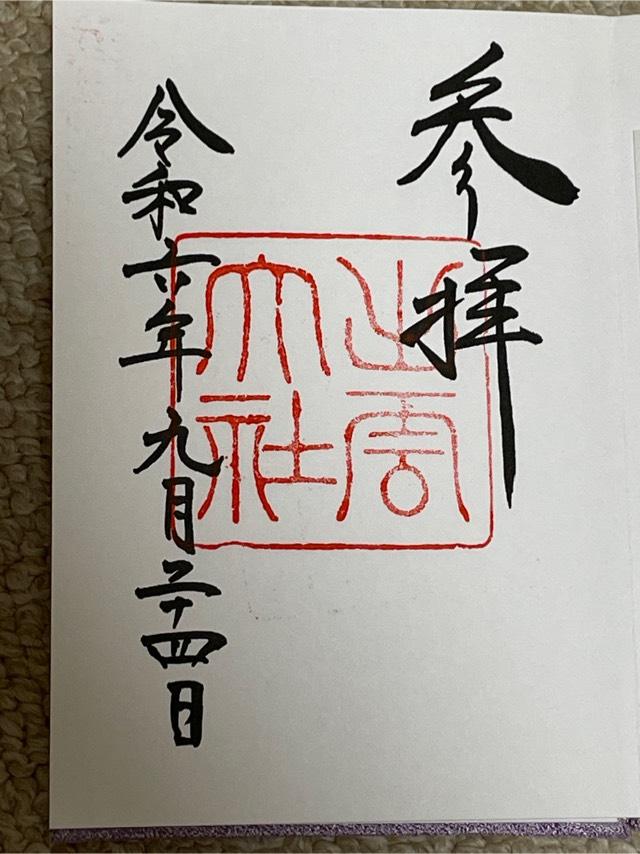 参拝
出雲
大社
令和六年九月二十四日